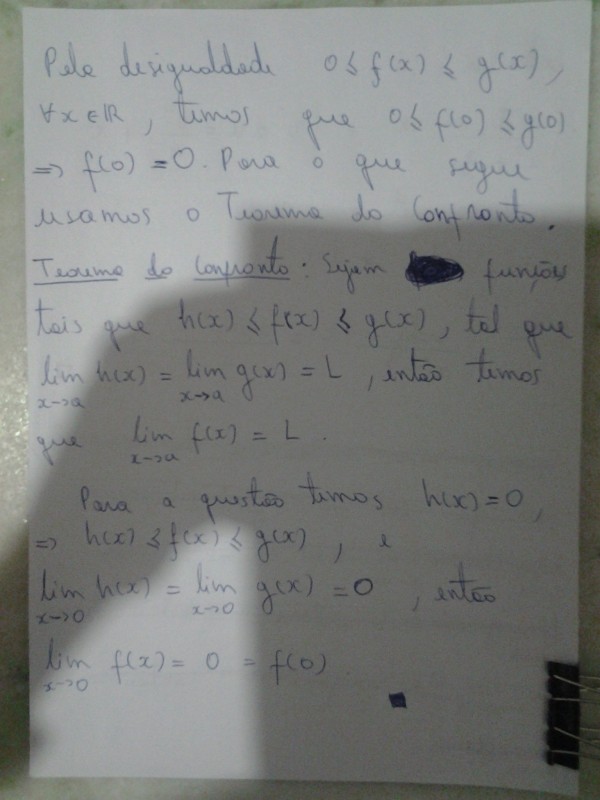 Pela desigualdade 0 ≤ f(x) ≤ g(x),
∀x ∈ ℝ, temos que 0 ≤ f(0) ≤ g(0)
⇒ f(0) = 0. Para o que segue
usamos o Teorema do Confronto.
Teorema do Confronto: Sejam funções
tais que h(x) ≤ f(x) ≤ g(x), tal que
lim x→a h(x) = lim x→a g(x) = L, então temos
que lim x→a f(x) = L.
Para a questão temos h(x) = 0,
⇒ h(x) ≤ f(x) ≤ g(x), e
lim x→0 h(x) = lim x→0 g(x) = 0, então
lim x→0 f(x) = 0 = f(0)
■